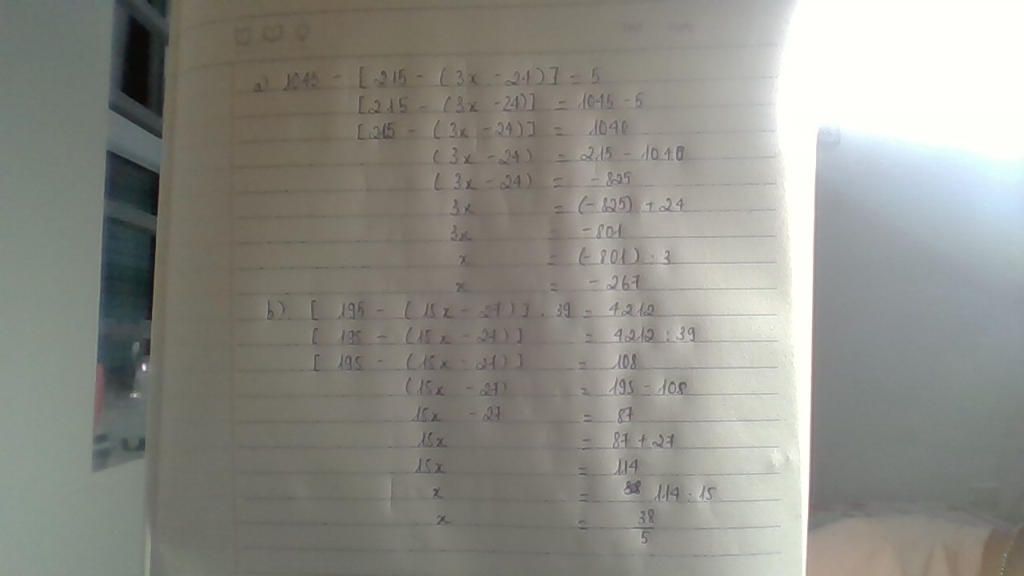 a) 1045 - [215 - (3x - 24)] = 5
[215 - (3x - 24)] = 1045 - 5
[215 - (3x - 24)] = 1040
(3x - 24) = 215 - 1040
(3x - 24) = -825
3x = (-825) + 24
3x = -801
x = (-801) : 3
x = -267
b) [195 - (15x - 27)] . 39 = 4212
[195 - (15x - 27)] = 4212 : 39
[195 - (15x - 27)] = 108
(15x - 27) = 195 - 108
15x - 27 = 87
15x = 87 + 27
15x = 114
x = 114 : 15
x = 38/5